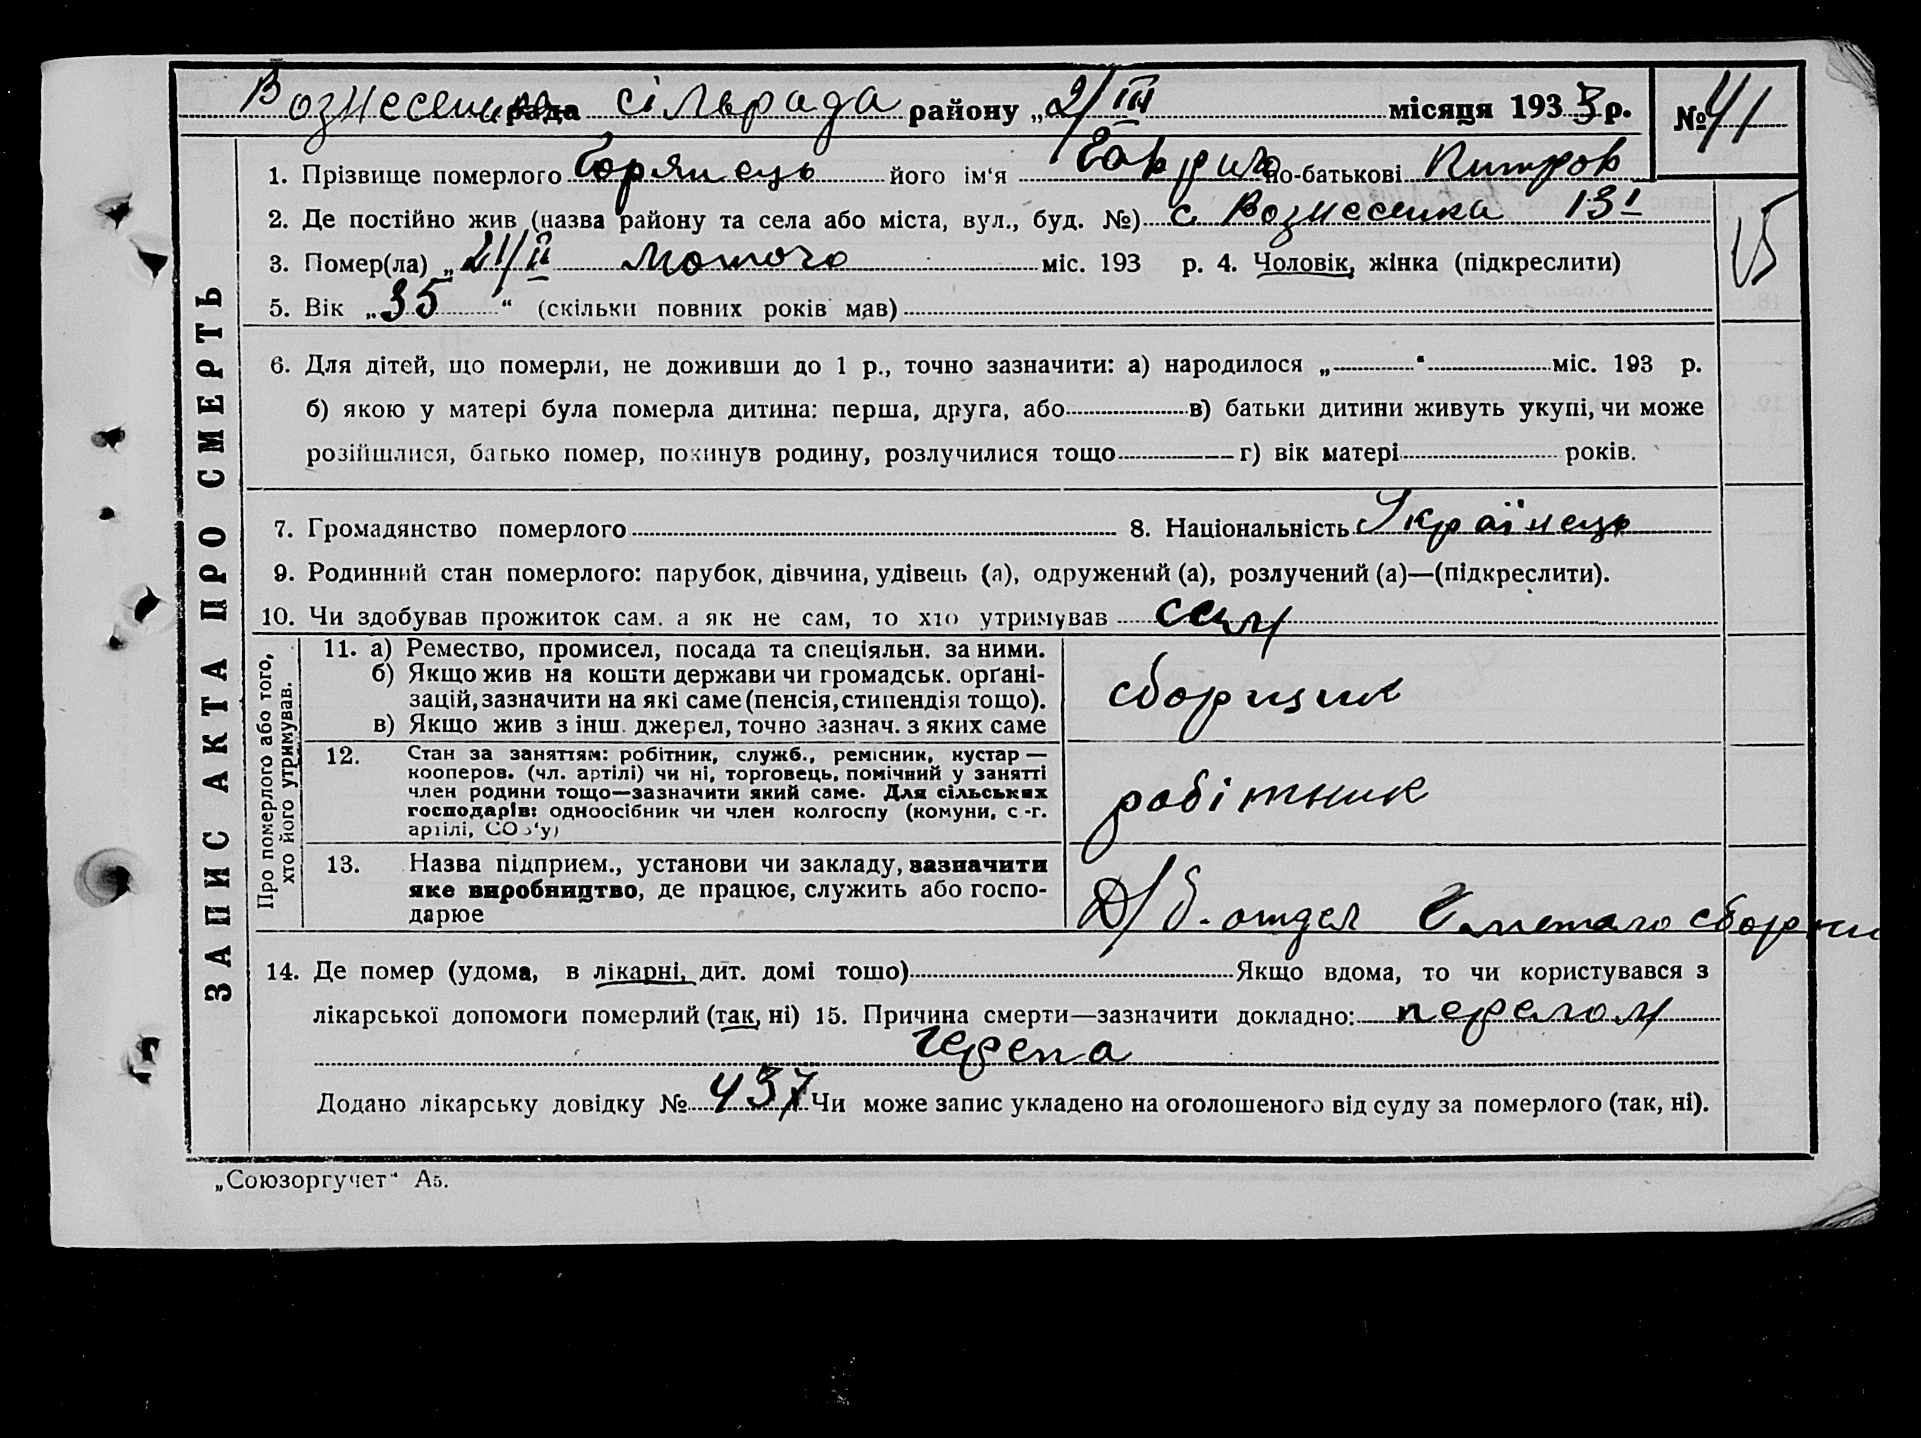 Вознесенка рада сільрада району „2/III місяця 1933 р. № 41
1. Прізвище померлого Горянець його ім‘я Гаврило по-батькові Питров
2. Де постійно жив (назва району та села або міста, вул., буд. №) с. Вознесенка 131
15
3. Помер(ла) „21/II лютого міс. 193 р. 4. Чоловік, жінка (підкреслити)
5. Вік „35“ (скільки повних років мав)
6. Для дітей, що померли, не доживши до 1 р., точно зазначити: а) народилося „ “ міс. 193 р.
б) якою у матері була померла дитина: перша, друга, або в) батьки дитини живуть укупі, чи може
розійшлися, батько помер, покинув родину, розлучилися тощо г) вік матері років.
7. Громадянство померлого 8. Національність Українець
9. Родинний стан померлого: парубок, дівчина, удівець (а), одружений (а), розлучений (а)—(підкреслити).
10. Чи здобував прожиток сам. а як не сам, то хто утримував сам
ЗАПИС АКТА ПРО СМЕРТЬ
Про померлого або того,
хто його утримував.
11. а) Ремество, промисел, посада та спеціяльн. за ними.
б) Якщо жив на кошти держави чи громадськ. орґані-
зацій, зазначити на які саме (пенсія, стипендія тощо).
в) Якщо жив з інш. джерел, точно зазнач. з яких саме
сборщик
12. Стан за заняттям: робітник, служб., ремісник, кустар —
кооперов. (чл. артілі) чи ні, торговець, помічний у занятті
член родини тощо—зазначити який саме. Для сільських
господарів: одноосібник чи член колгоспу (комуни, с.-г.
артілі, СОЗ‘у)
робітник
13. Назва підприєм., установи чи закладу, зазначити
яке виробництво, де працює, служить або госпо-
дарює
Д/б. отдел
14. Де помер (удома, в лікарні, дит. домі тощо) Якщо вдома, то чи користувався з
лікарської допомоги померлий (так, ні) 15. Причина смерти—зазначити докладно: перелом
черепа
Додано лікарську довідку № 437 Чи може запис укладено на оголошеного від суду за померлого (так, ні).
„Союзоргучет“ А5.